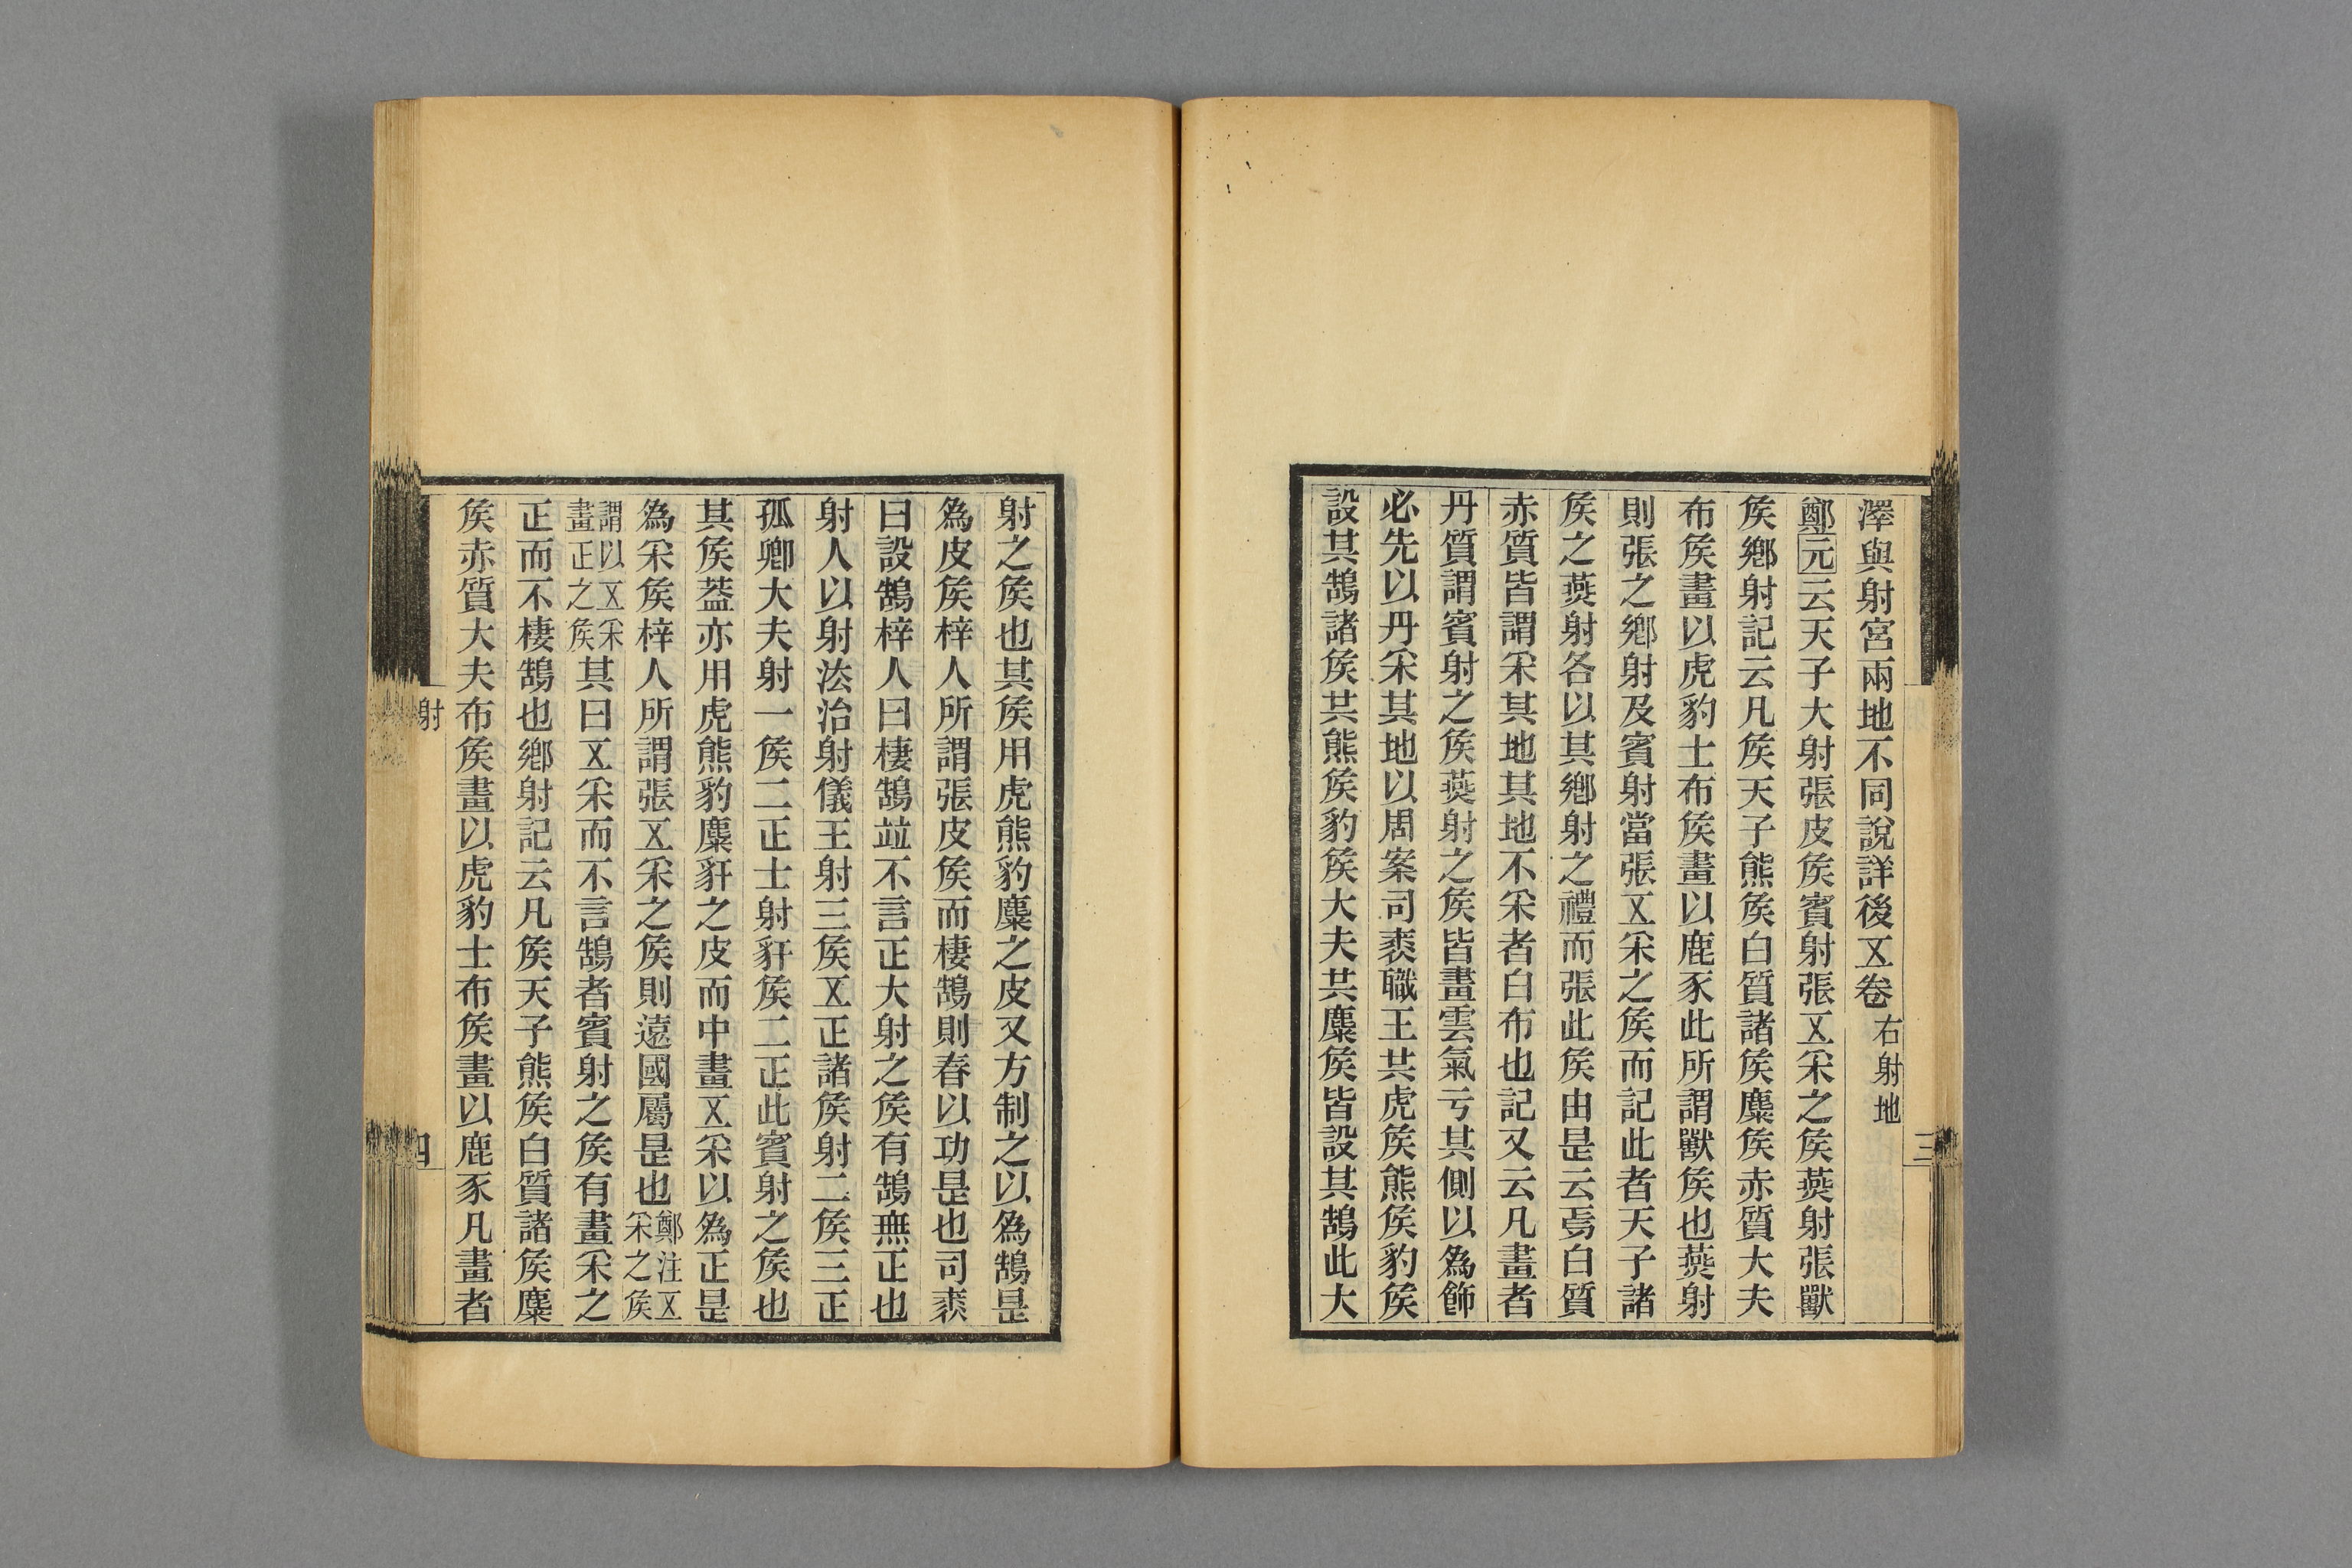 澤與射宮兩地不同說詳後㐅卷右射地
鄭元云天子大射張皮矦賓射張㐅采之矦燕射張獸
矦鄉射記云凡矦天子熊矦白質諸矦麋矦赤質大夫
布矦畫以虎豹士布矦畫以鹿豕此所謂獸矦也燕射
則張之鄉射及賓射當張㐅采之矦而記此者天子諸
矦之燕射各以其鄉射之禮而張此矦由是云焉白質
赤質皆謂采其地其地不采者白布也記又云凡畫者
丹質謂賓射之矦燕射之矦皆畫雲氣亏其側以爲飾
必先以丹采其地以周案司裘職王共虎矦熊矦豹矦
設其鵠諸矦共熊矦豹矦大夫共麋矦皆設其鵠此大
三
射之矦也其矦用虎熊豹麋之皮又方制之以爲鵠是
爲皮矦梓人所謂張皮矦而棲鵠則春以功是也司裘
曰設鵠梓人曰棲鵠竝不言正大射之矦有鵠無正也
射人以射法治射儀王射三矦㐅正諸矦射二矦三正
孤卿大夫射一矦二正士射豻矦二正此賓射之矦也
其矦葢亦用虎熊豹麋豻之皮而中畫㐅采以爲正是
爲采矦梓人所謂張㐅采之矦則遠國屬是也鄭注㐅采之矦
謂以㐅采畫正之矦其曰㐅采而不言鵠者賓射之矦有畫采之
正而不棲鵠也鄉射記云凡矦天子熊矦白質諸矦麋
矦赤質大夫布矦畫以虎豹士布矦畫以鹿豕凡畫者
射
四